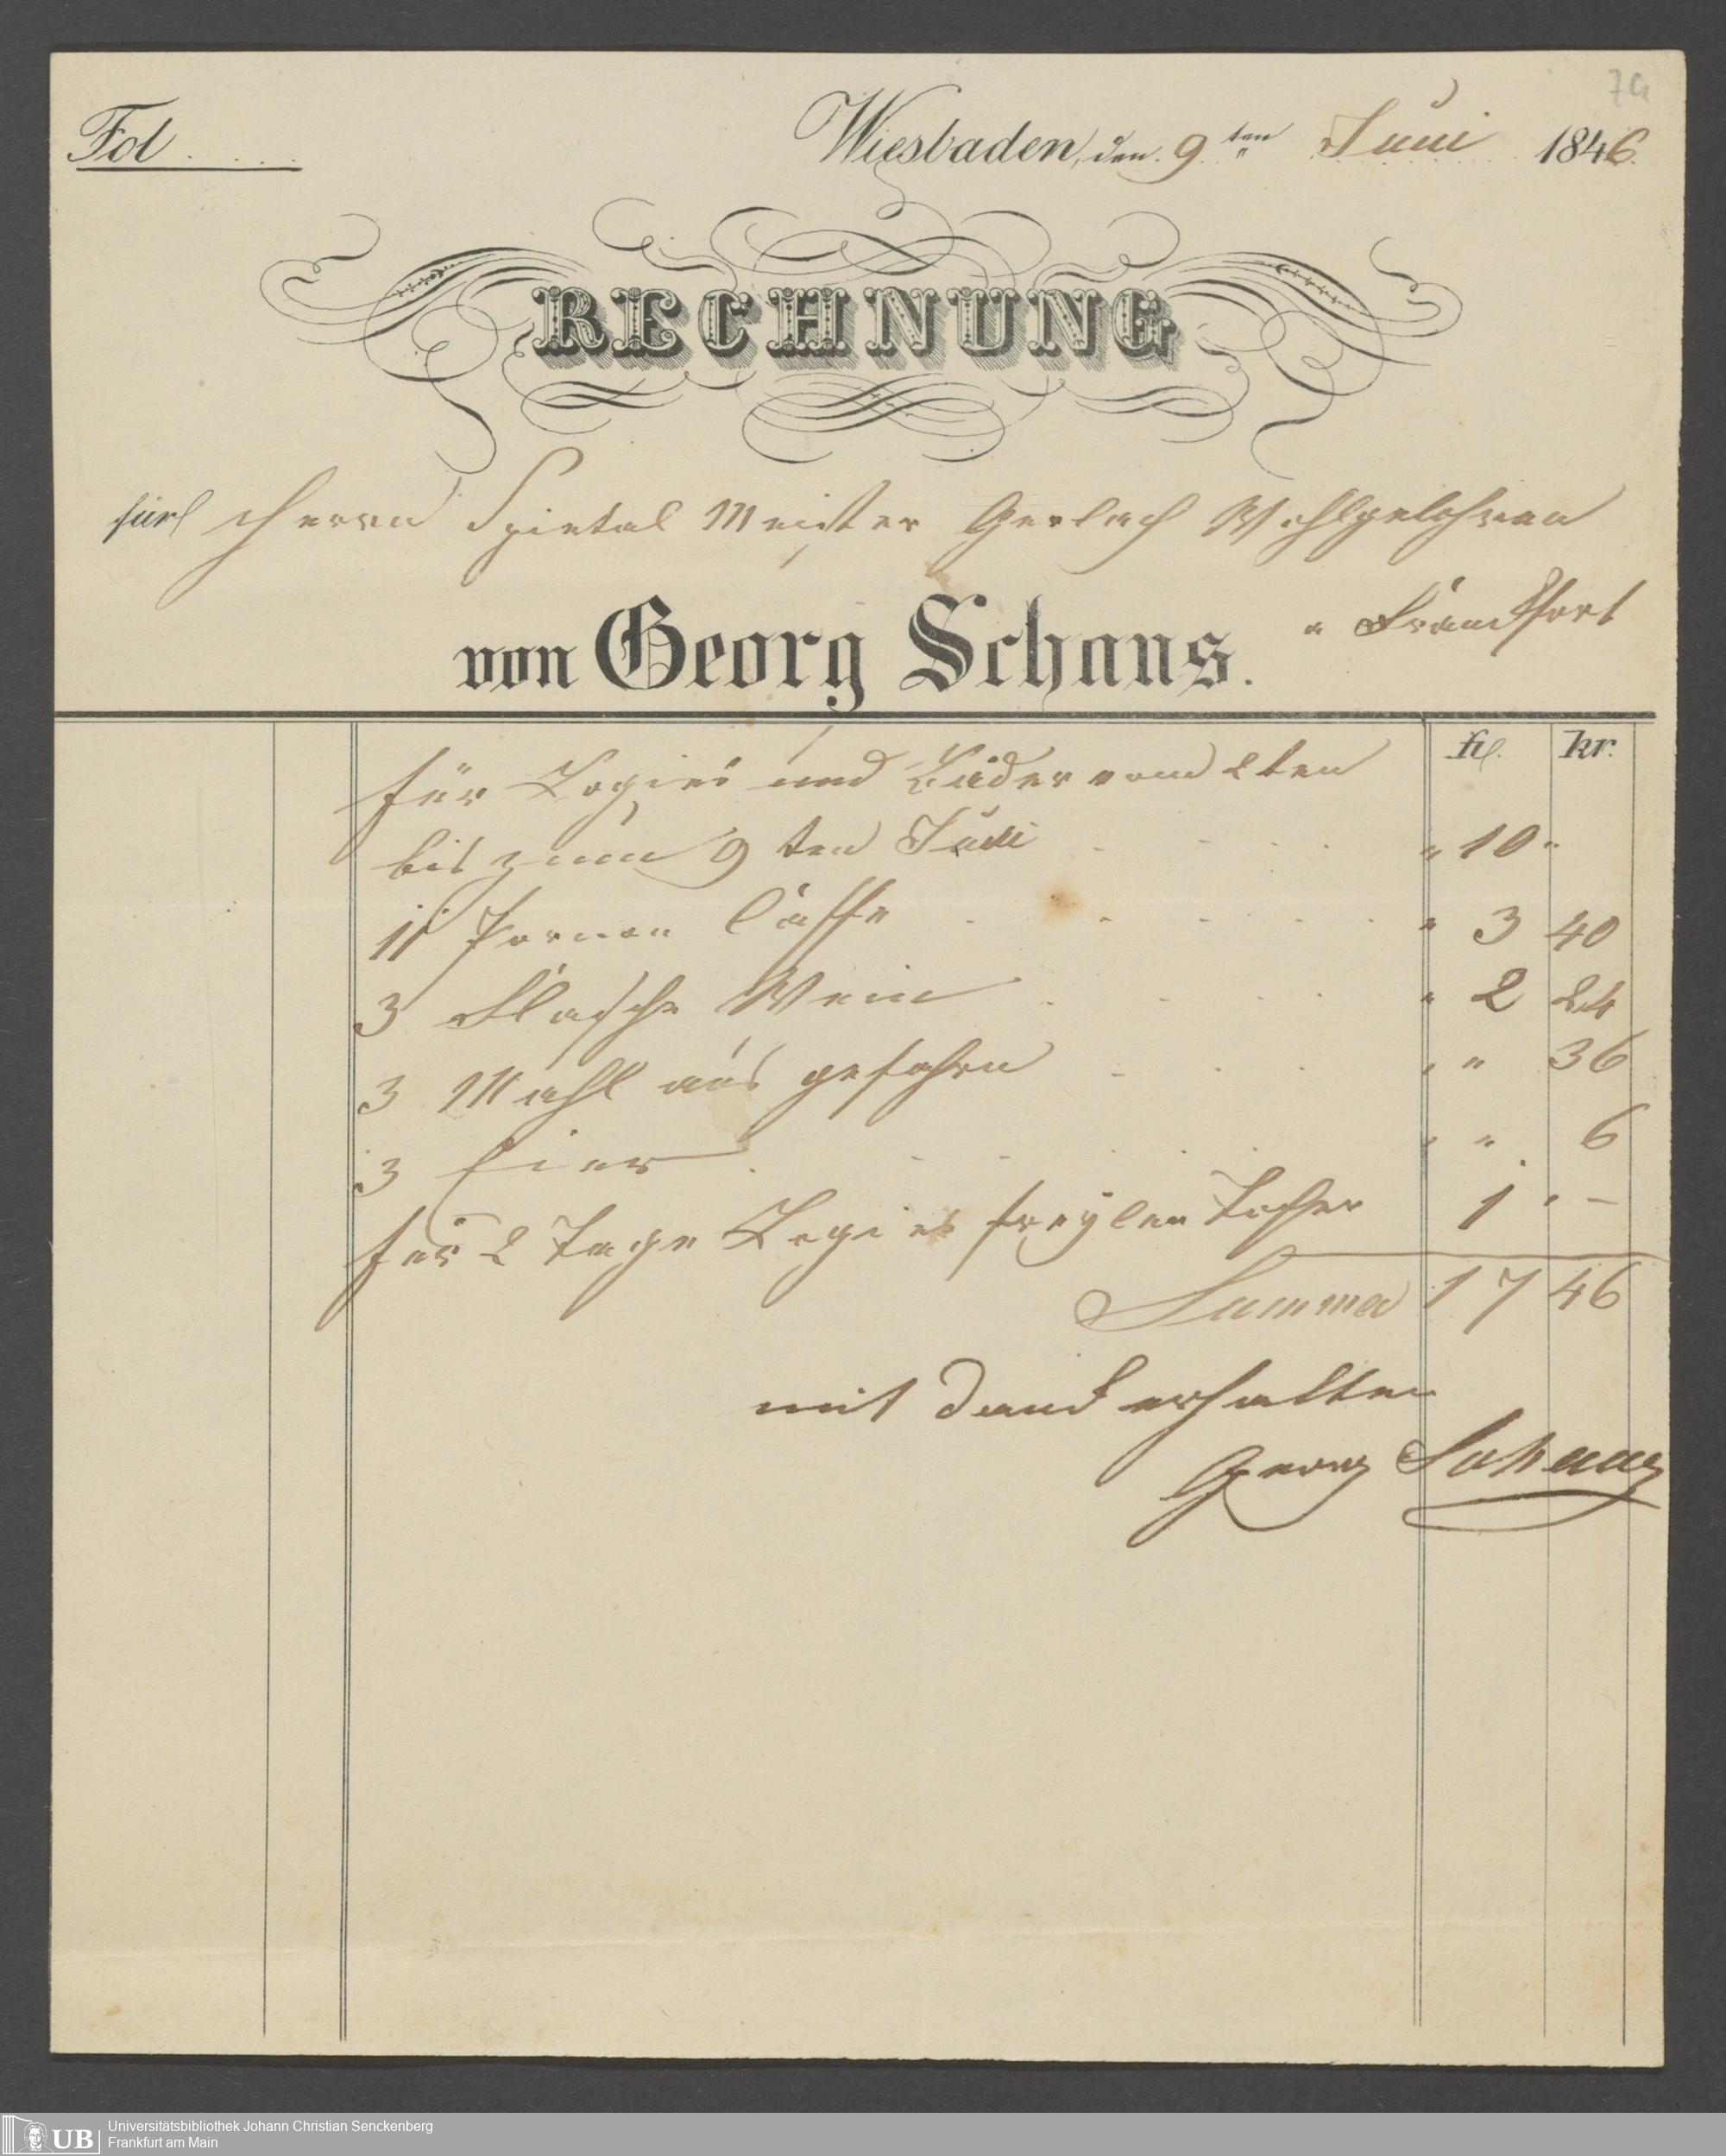 7a
Fol . . . .
Wiesbaden, den 9ten Juni 1846
RECHNUNG
für Herrn Spietal Meister Gerlach Wohlgebohren
von Georg Schaus. " Franckfort
fl. kr.
für Logies und Bäder vom 2ten
bis zum 9ten Juni . . . . . " 10 "
11 Porzion Caffe . . . . . . " 3 40
3 Flasche Wein . . . . . " 2 24
3 Mahl aus gefahrn . . . " " 36
3 Eier . . . . . " " 6
für 2 Tage Logies Tochter 1 " –
Summa 17 46
mit Danck erhalten
Georg Schaus
UB Universitätsbibliothek Johann Christian Senckenberg
Frankfurt am Main